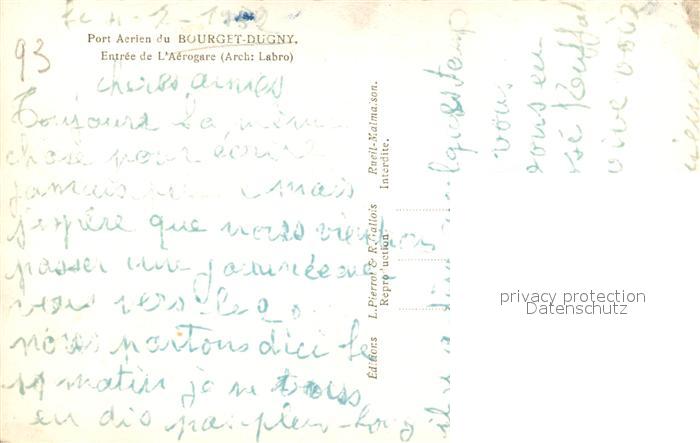 le 4-2-1932
Port Aerien du BOURGET-DUGNY.
Entrée de L'Aérogare (Arch: Labro)
93
chers amies
Toujours la même
chose pour écrire
jamais mais
j'espère que nous viendrons
passer une journée avec
vous vers le 20
nous partons d'ici le
19 matin je ne vous
en dis pas plus long
Éditions L. Pierrot & R. Gallois Rueil-Malmaison.
Reproduction Interdite.
il y a quelques temps
vous
vous en
vive voix
privacy protection
Datenschutz